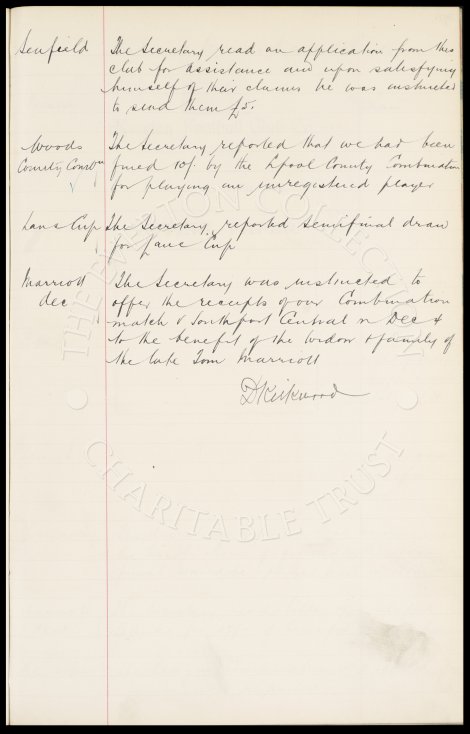 Senfield The Secretary read an application from this
club for assistance and upon satisfying
himself of their claims he was instructed
to send them £5.
Woods The Secretary reported that we had been
County Comb'n fined 10/- by the Lpool County Combination
for playing an unregistered player
Lancs Cup The Secretary reported Semifinal draw
for Lanc Cup
Marriott The Secretary was instructed to
dec offer the receipts of our Combination
match v Southport Central on Dec 4
to the benefit of the widow & family of
the late Tom Marriott
D Kirkwood
THE EVERTON COLLECTION
CHARITABLE TRUST